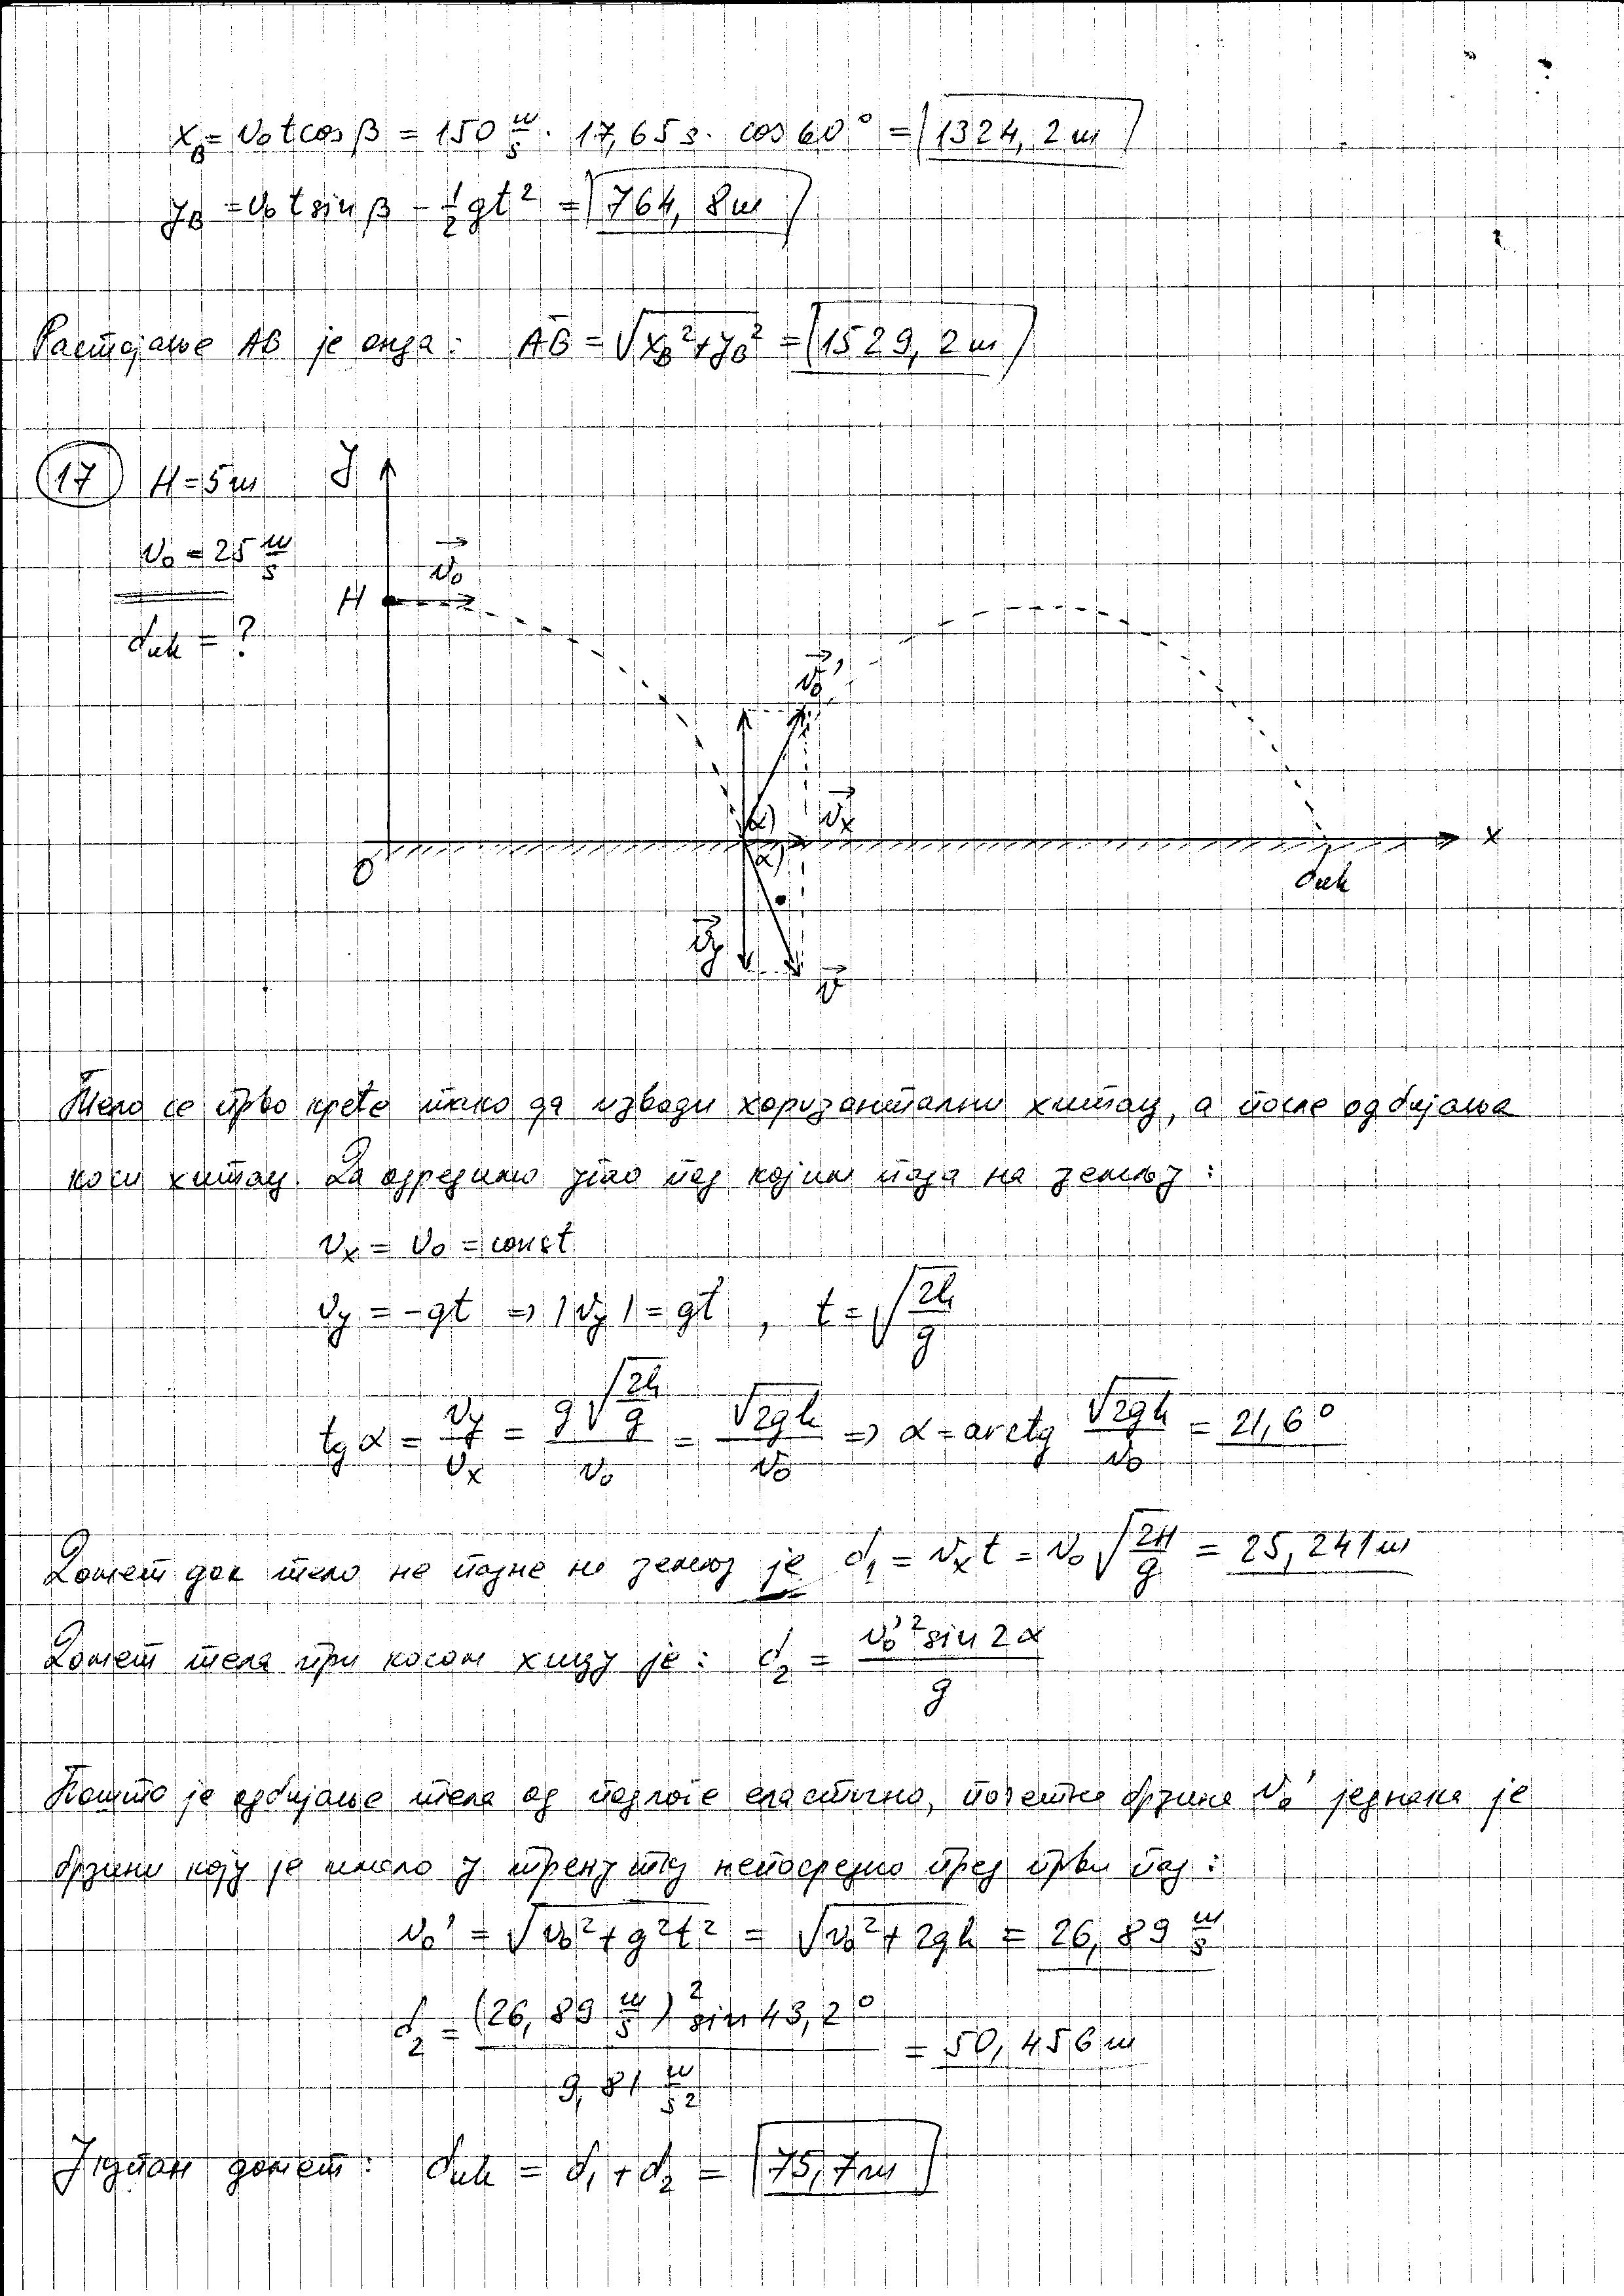 x_B = v₀ t cos β = 150 м/s · 17,65 s · cos 60° = 1324,2 м
y_B = v₀ t sin β − 1/2 gt² = 764,8 м
Растојање AB је онда: AB = √(x_B² + y_B²) = 1529,2 м
17 H = 5 м
y
v₀ = 25 м/s
v₀
H
d_uk = ?
v₀'
α
v_x
x
O
α
d_uk
v_y
v
Тело се прво креће тако да изводи хоризонтални хитац, а после одбијања
коси хитац. Да одредимо угао под којим пада на земљу:
v_x = v₀ = const
v_y = −gt ⇒ |v_y| = gt , t = √(2h/g)
tg α = v_y/v_x = g√(2h/g)/v₀ = √(2gh)/v₀ ⇒ α = arctg √(2gh)/v₀ = 21,6°
Домет док тело не падне на земљу је d₁ = v_x t = v₀ √(2H/g) = 25,241 м
Домет тела при косом хицу је: d₂ = v₀'² sin 2α / g
Пошто је одбијање тела од подлоге еластично, почетна брзина v₀' једнака је
брзини коју је имало у тренутку непосредно пред први пад:
v₀' = √(v₀² + g²t²) = √(v₀² + 2gh) = 26,89 м/s
d₂ = (26,89 м/s)² sin 43,2° / 9,81 м/s² = 50,456 м
Укупан домет: d_uk = d₁ + d₂ = 75,7 м